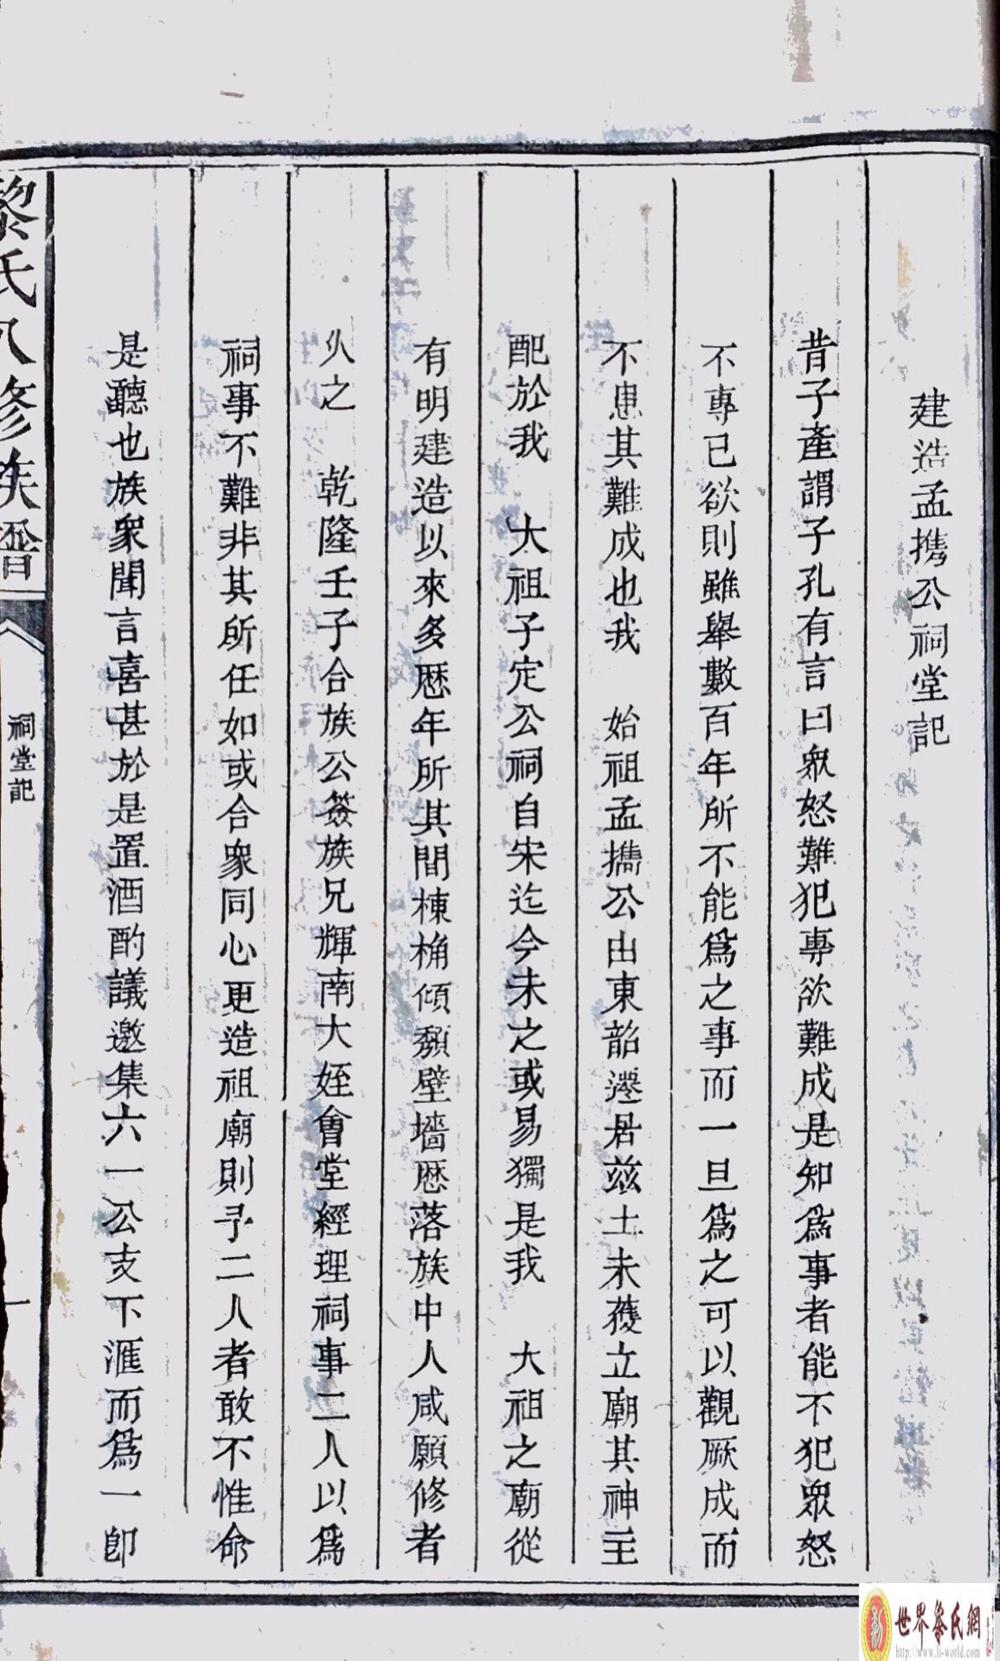 建造孟携公祠堂記
昔子產謂子孔有言曰衆怒難犯專欲難成是知爲事者能不犯衆怒
不專己欲則雖舉數百年所不能爲之事而一旦爲之可以觀厥成而
不患其難成也我　始祖孟攜公由東韶遷居兹土未獲立廟其神主
配於我　太祖子定公祠自宋迄今未之或易獨是我　大祖之廟從
有明建造以來多歷年所其間棟桷傾頽壁墻歷落族中人咸願修者
久之　乾隆壬子合族公簽族兄輝南大姪會堂經理祠事二人以爲
祠事不難非其所任如或合衆同心更造祖廟則予二人者敢不惟命
是聽也族衆聞言喜甚於是置酒酌議邀集六一公支下滙而爲一卽
黎氏八修族譜
祠堂記
一
世界黎氏網
http://www.li-world.com